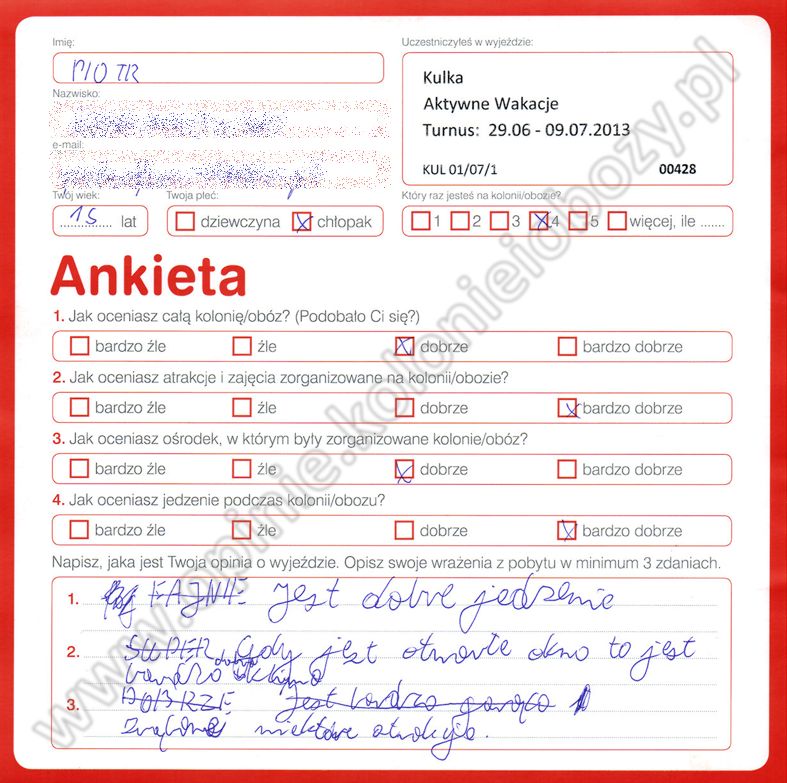 Imię:
PIOTR
Nazwisko:
e-mail:
Twój wiek:
15 lat
Twoja płeć:
dziewczyna chłopak
Uczestniczyłeś w wyjeździe:
Kulka
Aktywne Wakacje
Turnus: 29.06 - 09.07.2013
KUL 01/07/1 00428
Który raz jesteś na kolonii/obozie?
1 2 3 4 5 więcej, ile .......
Ankieta
1. Jak oceniasz całą kolonię/obóz? (Podobało Ci się?)
bardzo źle źle dobrze bardzo dobrze
2. Jak oceniasz atrakcje i zajęcia zorganizowane na kolonii/obozie?
bardzo źle źle dobrze bardzo dobrze
3. Jak oceniasz ośrodek, w którym były zorganizowane kolonie/obóz?
bardzo źle źle dobrze bardzo dobrze
4. Jak oceniasz jedzenie podczas kolonii/obozu?
bardzo źle źle dobrze bardzo dobrze
Napisz, jaka jest Twoja opinia o wyjeździe. Opisz swoje wrażenia z pobytu w minimum 3 zdaniach.
1. FAJNIE Jest dobre jedzenie
2. SUPER Gdy jest otwarte okno to jest
bardzo dobry klimat
3. DOBRZE Jest bardzo gorąco
niektóre atrakcje.
www.opinie.kolonieiobozy.pl